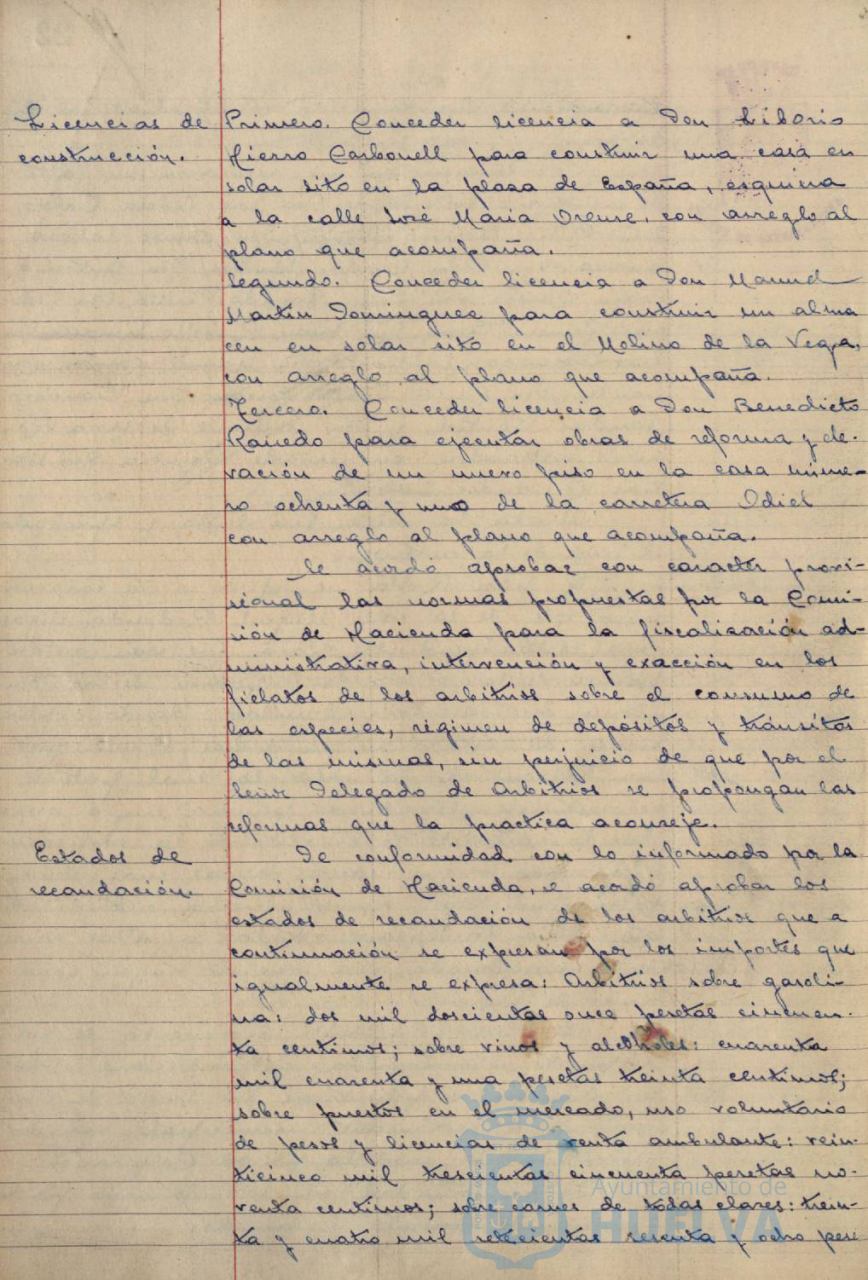 Licencias de
construcción.
Primero. Conceder licencia a Don Liborio
Hierro Carbonell para construir una casa en
solar sito en la plaza de España, esquina
a la calle José Maria Orense, con arreglo al
plano que acompaña.
Segundo. Conceder licencia a Don Manuel
Martín Dominguez para construir un alma
cen en solar sito en el Molino de la Vega,
con arreglo al plano que acompaña.
Tercero. Conceder licencia a Don Benedicto
para ejecutar obras de reforma y ele-
vación de un nuevo piso en la casa núme-
ro ochenta y uno de la carretera Odiel
con arreglo al plano que acompaña.
Se acordó aprobar con caracter provi-
sional las normas propuestas por la Comi-
sión de Hacienda para la fiscalización ad-
ministrativa, intervención y exacción en los
fielatos de los arbitrios sobre el consumo de
las especies, régimen de depósitos y tránsitos
de las mismas, sin perjuicio de que por el
Señor Delegado de Arbitrios se propongan las
reformas que la practica aconseje.
Estados de
recaudación.
De conformidad con lo informado por la
Comisión de Hacienda, se acordó aprobar los
estados de recaudación de los arbitrios que a
continuación se expresan por los importes que
igualmente se expresa: Arbitrios sobre gasoli-
na: dos mil doscientas once pesetas cincuen-
ta centimos; sobre vinos y alcoholes: cuarenta
mil cuarenta y una pesetas treinta centimos;
sobre puestos en el mercado, uso voluntario
de pesos y licencias de venta ambulante: vein-
ticinco mil trescientas cincuenta pesetas no-
venta centimos; sobre carnes de todas clases: trein-
ta y cuatro mil setecientas sesenta y ocho pese
Ayuntamiento de
HUELVA